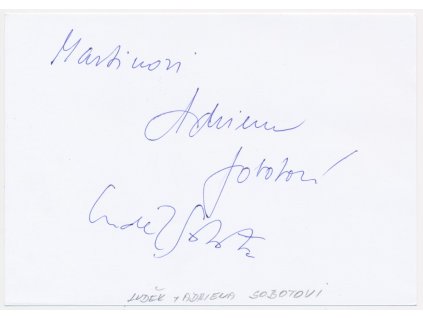 Martinovi
Adriena
Sobotovi
Luděk Sobota
LUDĚK + ADRIENA SOBOTOVI